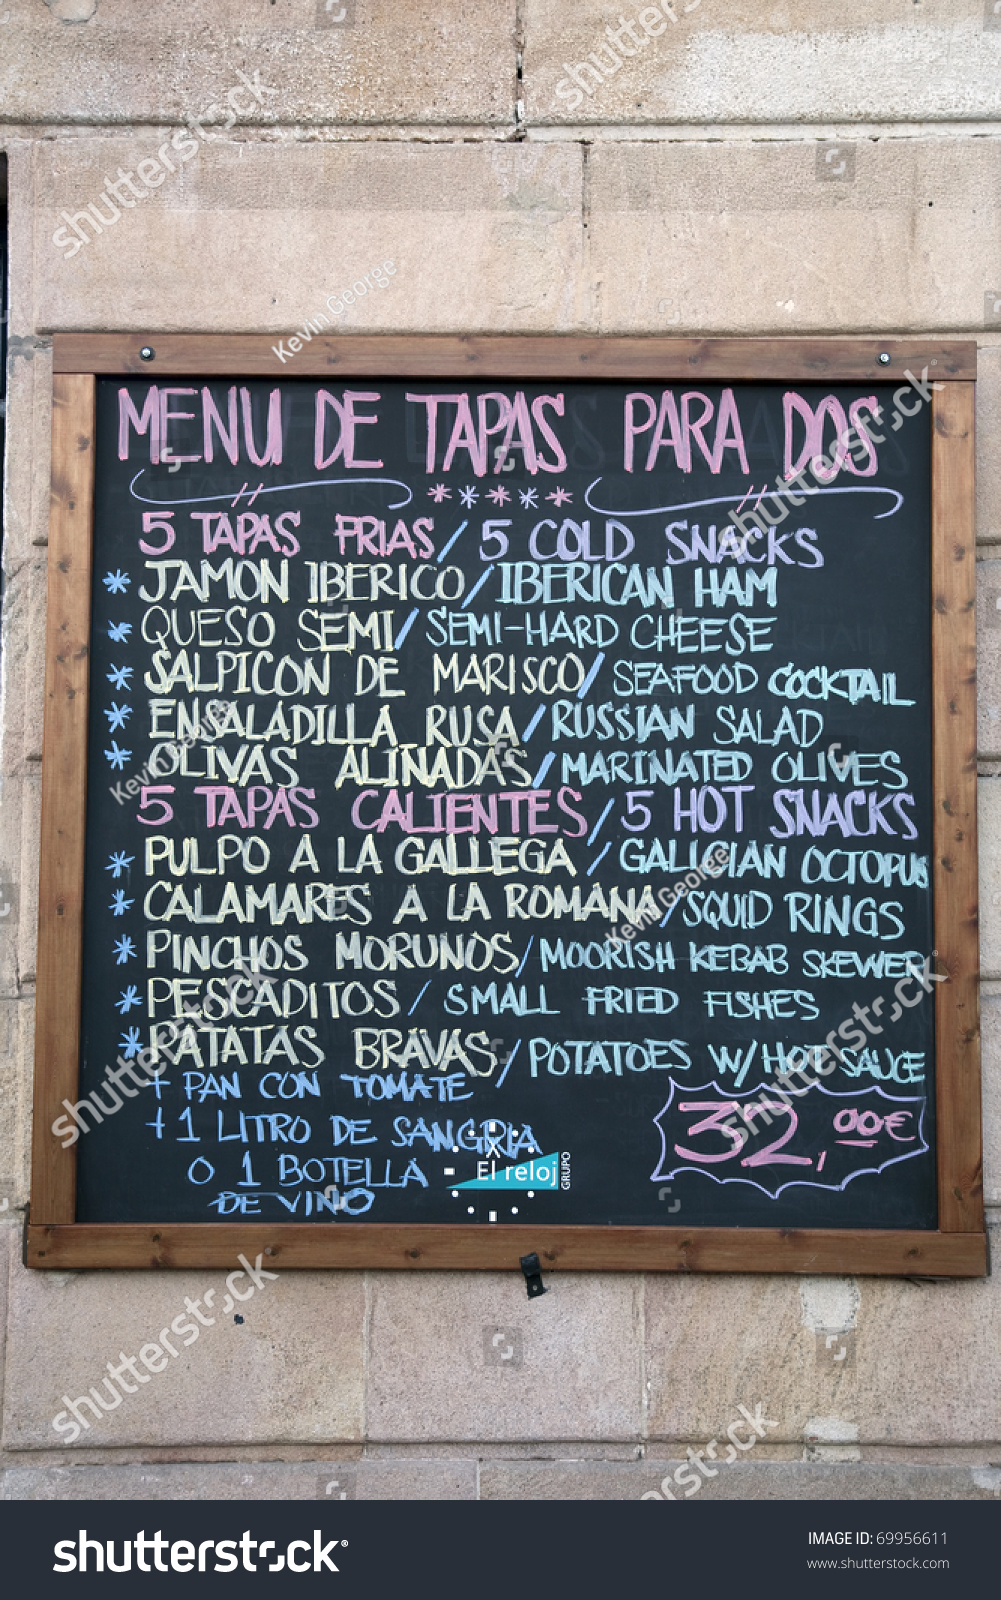 MENU DE TAPAS PARA DOS
5 TAPAS FRIAS / 5 COLD SNACKS
* JAMON IBERICO / IBERICAN HAM
* QUESO SEMI / SEMI-HARD CHEESE
* SALPICON DE MARISCO / SEAFOOD COCKTAIL
* ENSALADILLA RUSA / RUSSIAN SALAD
* OLIVAS ALIÑADAS / MARINATED OLIVES
5 TAPAS CALIENTES / 5 HOT SNACKS
* PULPO A LA GALLEGA / GALICIAN OCTOPUS
* CALAMARES A LA ROMANA / SQUID RINGS
* PINCHOS MORUNOS / MOORISH KEBAB SKEWER
* PESCADITOS / SMALL FRIED FISHES
* PATATAS BRAVAS / POTATOES W/HOT SAUCE
+ PAN CON TOMATE
+ 1 LITRO DE SANGRIA
O 1 BOTELLA
DE VINO
32,00€
El reloj
GRUPO
shutterstock
Kevin George
shutterstock
IMAGE ID: 69956611
www.shutterstock.com